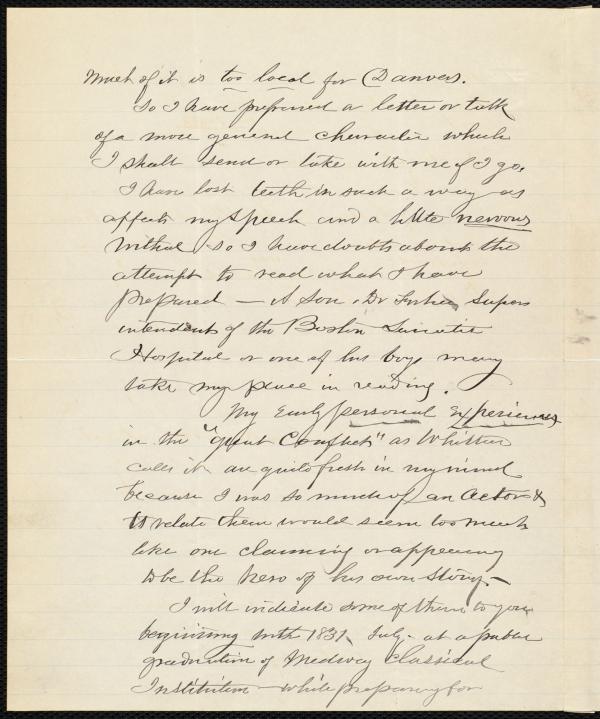 Much of it is too local for Danvers.
So I have prepared a letter or talk
of a more general character which
I shall send or take with me if I go.
I have lost teeth in such a way as
affects my speech and a little nervous
withal so I have doubts about the
attempt to read what I have
prepared — A son, Dr. Fisher Super
intendent of the Boston Lunatic
Hospital or one of his boys may
take my place in reading.
My Early personal Experiences
in the "great Conflict" as Whittier
calls it are quite fresh in my mind
because I was so much of an actor &
to relate them would seem too much
like one claiming or appearing
to be the hero of his own story. —
I will indicate some of them to you
beginning with 1831, July. at a public
graduation of Medway Classical
Institution — while preparing for